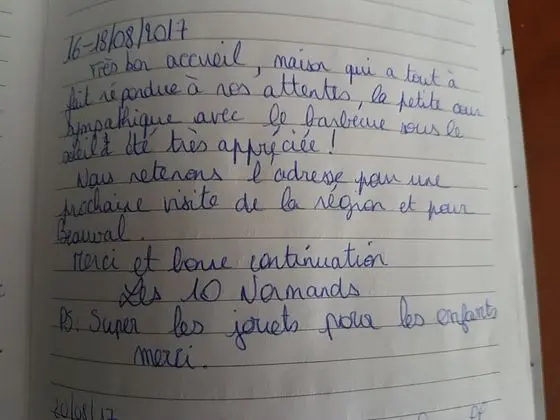 16-18/08/2017
Très bon accueil, maison qui a tout à
fait répondue à nos attentes, la petite cour
sympathique avec le barbecue sous le
soleil a été très appréciée !
Nous retenons l'adresse pour une
prochaine visite de la région et pour
Beauval.
Merci et bonne continuation
Les 10 Normands
PS. Super les jouets pour les enfants
merci.
20/08/17